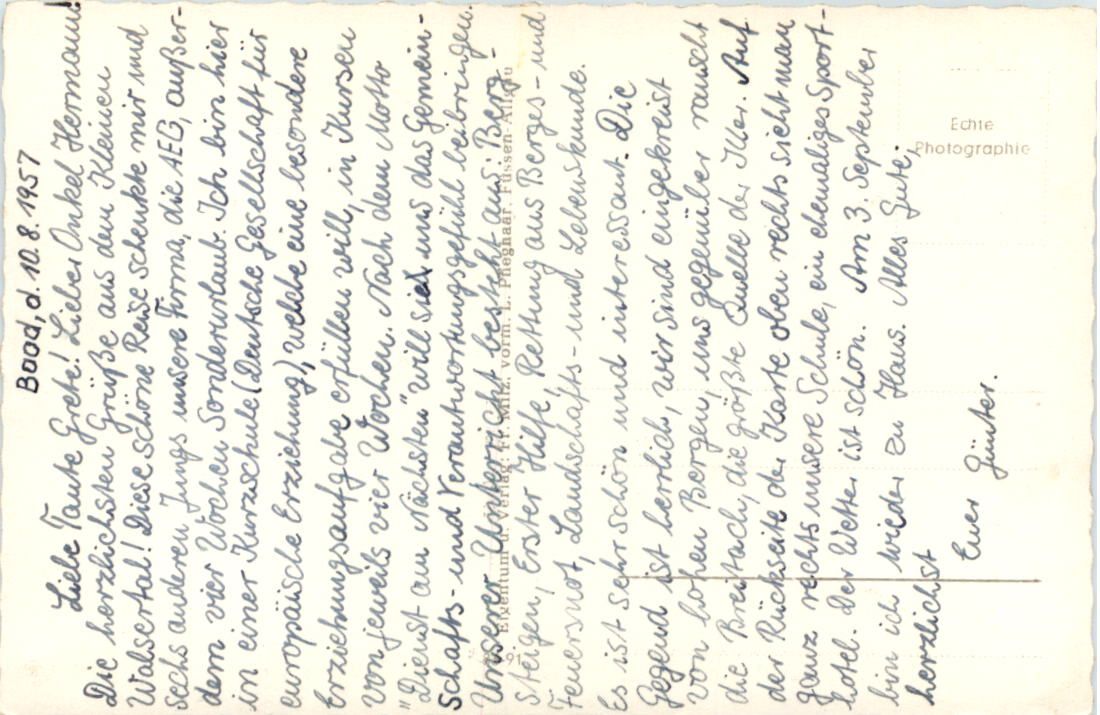 Baad, d. 10.8.1957
Liebe Tante Grete! Lieber Onkel Hermann!
Die herzlichsten Grüße aus dem Kleinen
Walsertal! Diese schöne Reise schenkte mir und
sechs anderen Jungs unsere Firma, die AEG, außer-
dem vier Wochen Sonderurlaub. Ich bin hier
in einer Kurzschule (Deutsche Gesellschaft für
europäische Erziehung), welche eine besondere
Erziehungsaufgabe erfüllen will, in Kursen
von jeweils vier Wochen. Nach dem Motto
"Dienst am Nächsten" will sie uns das Gemein-
schafts- und Verantwortungsgefühl beibringen.
Unserer Unterricht besteht aus: Berg-
steigen, Erster Hilfe, Rettung aus Berges- und
Feuersnot, Landschafts- und Lebenskunde.
Es ist sehr schön und interessant. Die
Gegend ist herrlich, wir sind eingekreist
von hohen Bergen, uns gegenüber rauscht
die Breitach, die größte Quelle der Iller. Auf
der Rückseite der Karte oben rechts sieht man
ganz rechts unsere Schule, ein ehemaliges Sport-
hotel. Der Wetter ist schön. Am 3. September
bin ich wieder zu Haus. Alles Gute,
herzlichst
Euer Günter.
Eigentum u. Verlag: Fr. Milz, vorm. L. Pfleghaar, Füssen-Allgäu
91
Echte
Photographie